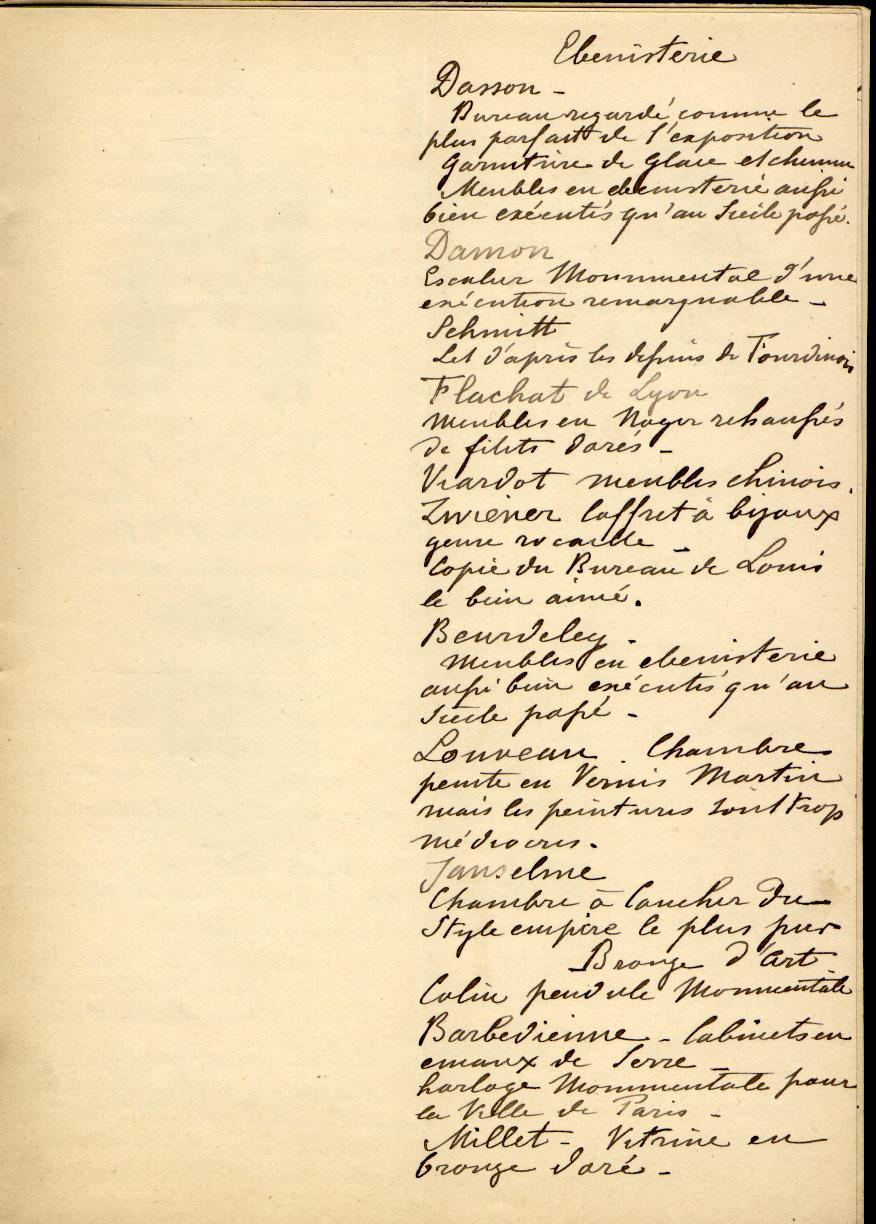 Ebenisterie
Dasson -
Bureau regardé comme le
plus parfait de l'exposition
Garniture de Glace et
Meubles en ebenisterie aussi
bien exécutés qu'au Siècle passé.
Damon
Escalier Monumental d'une
exécution remarquable -
Schmitt
Lit d'après les dessins de Fourdinois
Flachat de Lyon
Meubles en Noyer rehaussés
de filets dorés -
Viardot meubles chinois.
Zwiener Coffret à bijoux
genre rocaille -
Copie du Bureau de Louis
le bien aimé.
Beurdeley -
Meubles en ebenisterie
aussi bien exécutés qu'au
Siècle passé -
Louveau. Chambre
peinte en Vernis Martin
mais les peintures sont trop
médiocres.
Janselme
Chambre à Coucher du
Style empire le plus pur
Bronze d'Art
Colin pendule Monumentale
Barbedienne - Cabinets en
emaux de Serre -
horloge Monumentale pour
la Ville de Paris -
Millet - Vitrine en
bronze doré -